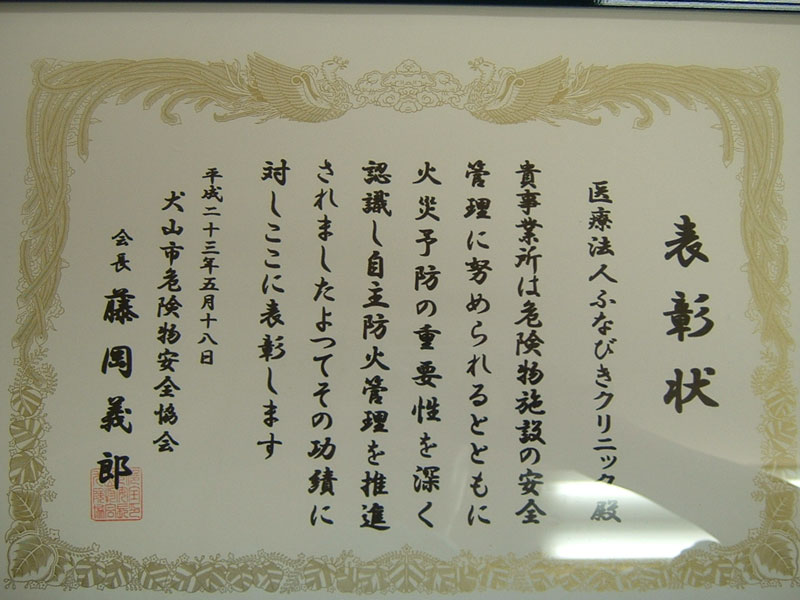 表彰状
医療法人ふなびきクリニック殿
貴事業所は危険物施設の安全
管理に努められるとともに
火災予防の重要性を深く
認識し自主防火管理を推進
されましたよつてその功績に
対しここに表彰します
平成二十三年五月十八日
犬山市危険物安全協会
会長 藤岡義郎